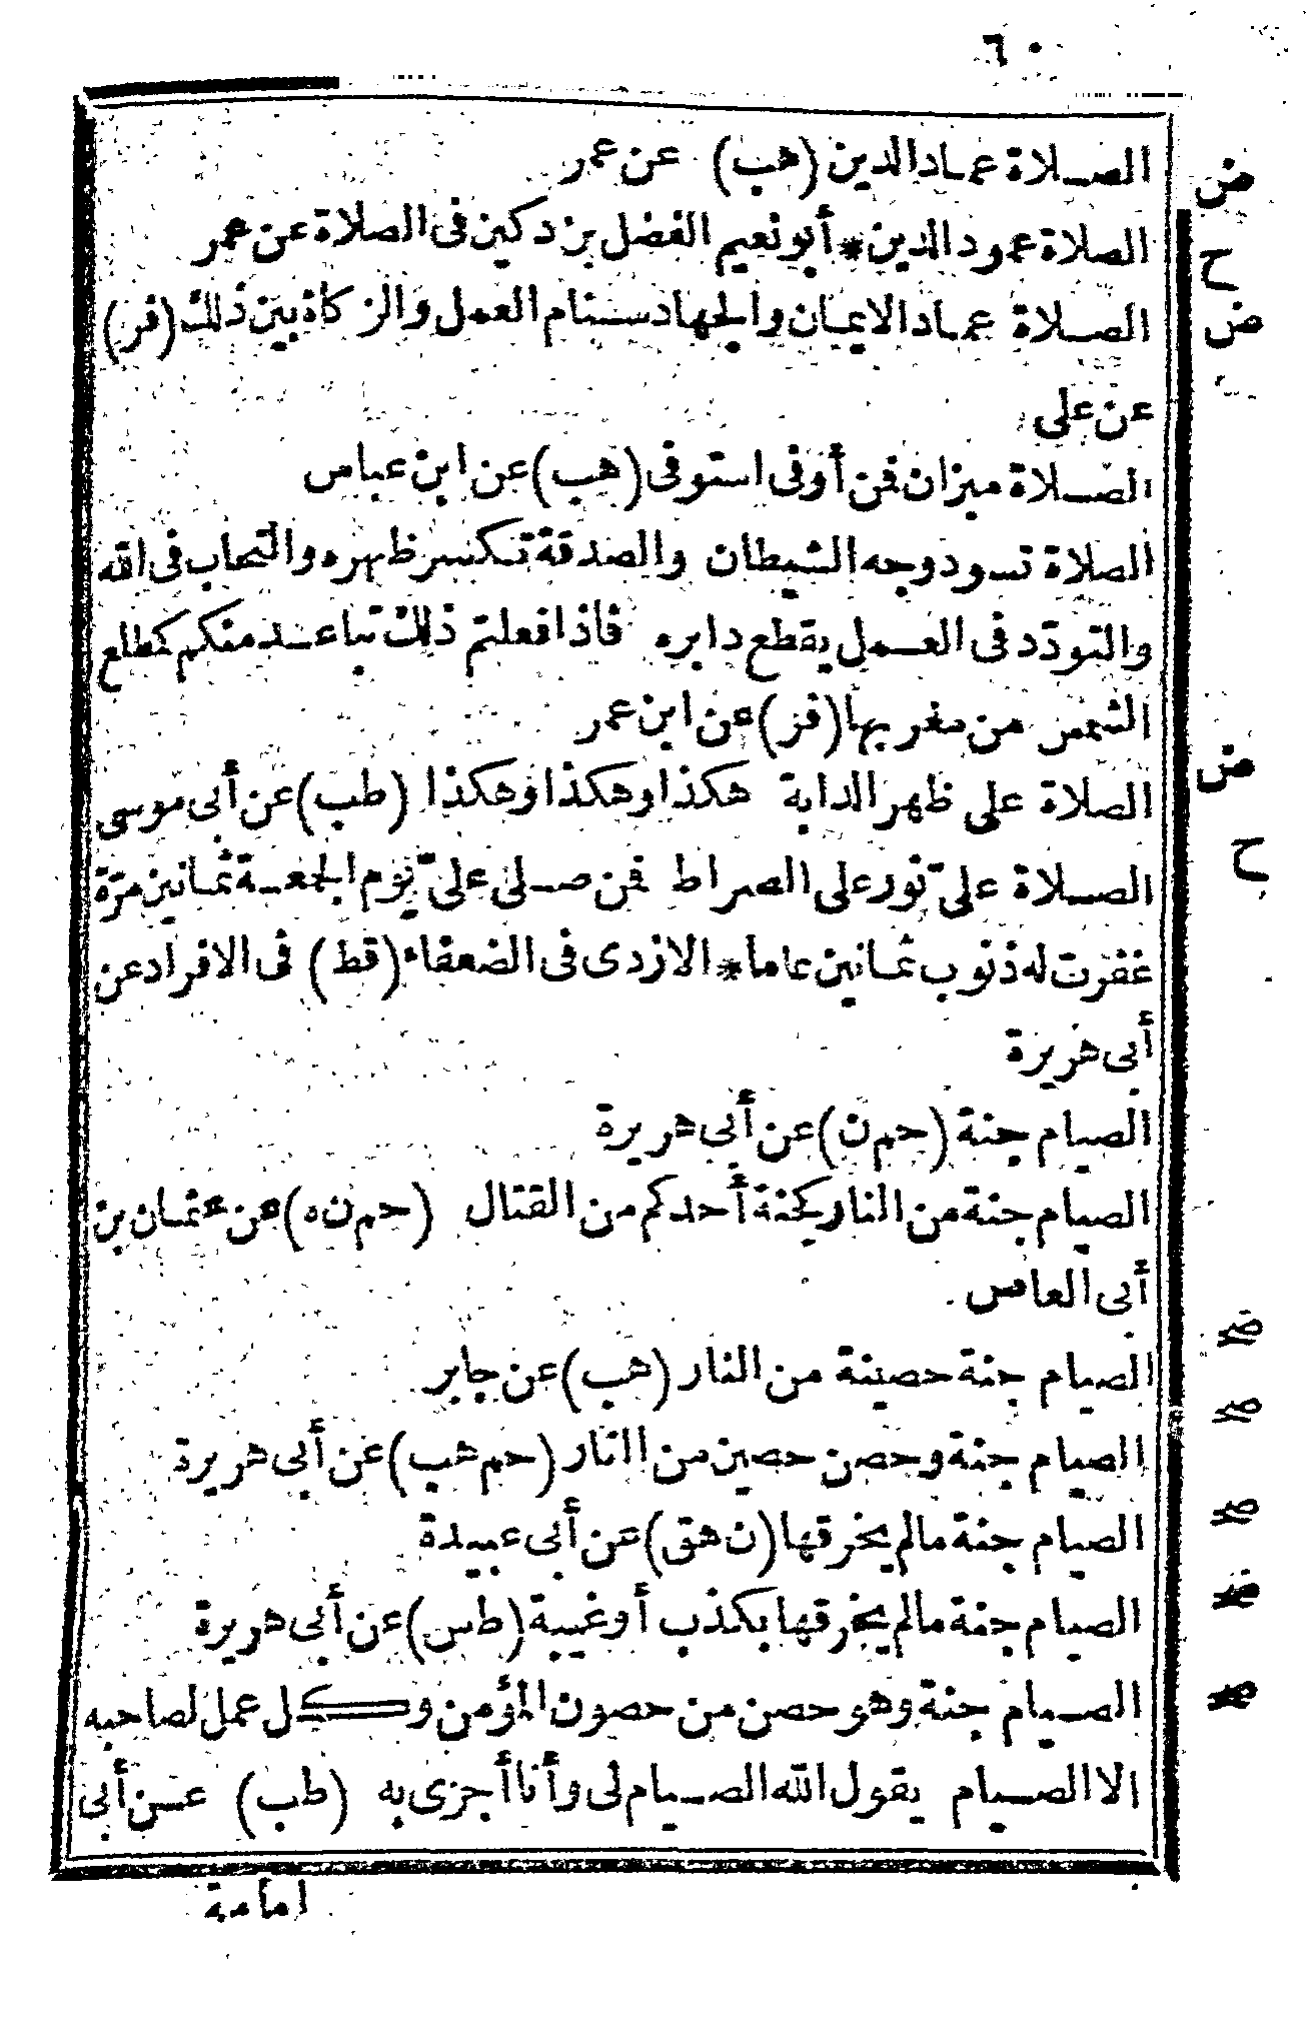 ٦٠
الصلاة عماد الدين (هب) عن عمر
ض
الصلاة عمود الدين * أبو نعيم الفضل بن دكين فى الصلاة عن عمر
ح
الصلاة عماد الايمان والجهاد سنام العمل والزكاة بين ذلك (فر)
ض
عن على
الصلاة ميزان فمن أوفى استوفى (هب) عن ابن عباس
الصلاة تسود وجه الشيطان والصدقة تكسر ظهره والتحاب فى الله
والتودّد فى العمل يقطع دابره فاذا فعلتم ذلك تباعد منكم كمطلع
الشمس من مغربها (فر) عن ابن عمر
ض
الصلاة على ظهر الدابة هكذا وهكذا وهكذا (طب) عن أبى موسى
ح
الصلاة علىّ نور على الصراط فمن صلى علىّ يوم الجمعة ثمانين مرّة
غفرت له ذنوب ثمانين عاما * الازدى فى الضعفاء (قط) فى الافراد عن
أبى هريرة
الصيام جنة (حم ن) عن أبى هريرة
الصيام جنة من النار كجنة أحدكم من القتال (حم ن ه) عن عثمان بن
أبى العاص
الصيام جنة حصينة من النار (هب) عن جابر
الصيام جنة وحصن حصين من النار (حم هب) عن أبى هريرة
الصيام جنة مالم يخرقها (ن هق) عن أبى عبيدة
الصيام جنة مالم يخرقها بكذب أو غيبة (طس) عن أبى هريرة
الصيام جنة وهو حصن من حصون المؤمن وكل عمل لصاحبه
الا الصيام يقول الله الصيام لى وأنا أجزى به (طب) عن أبى
امامة